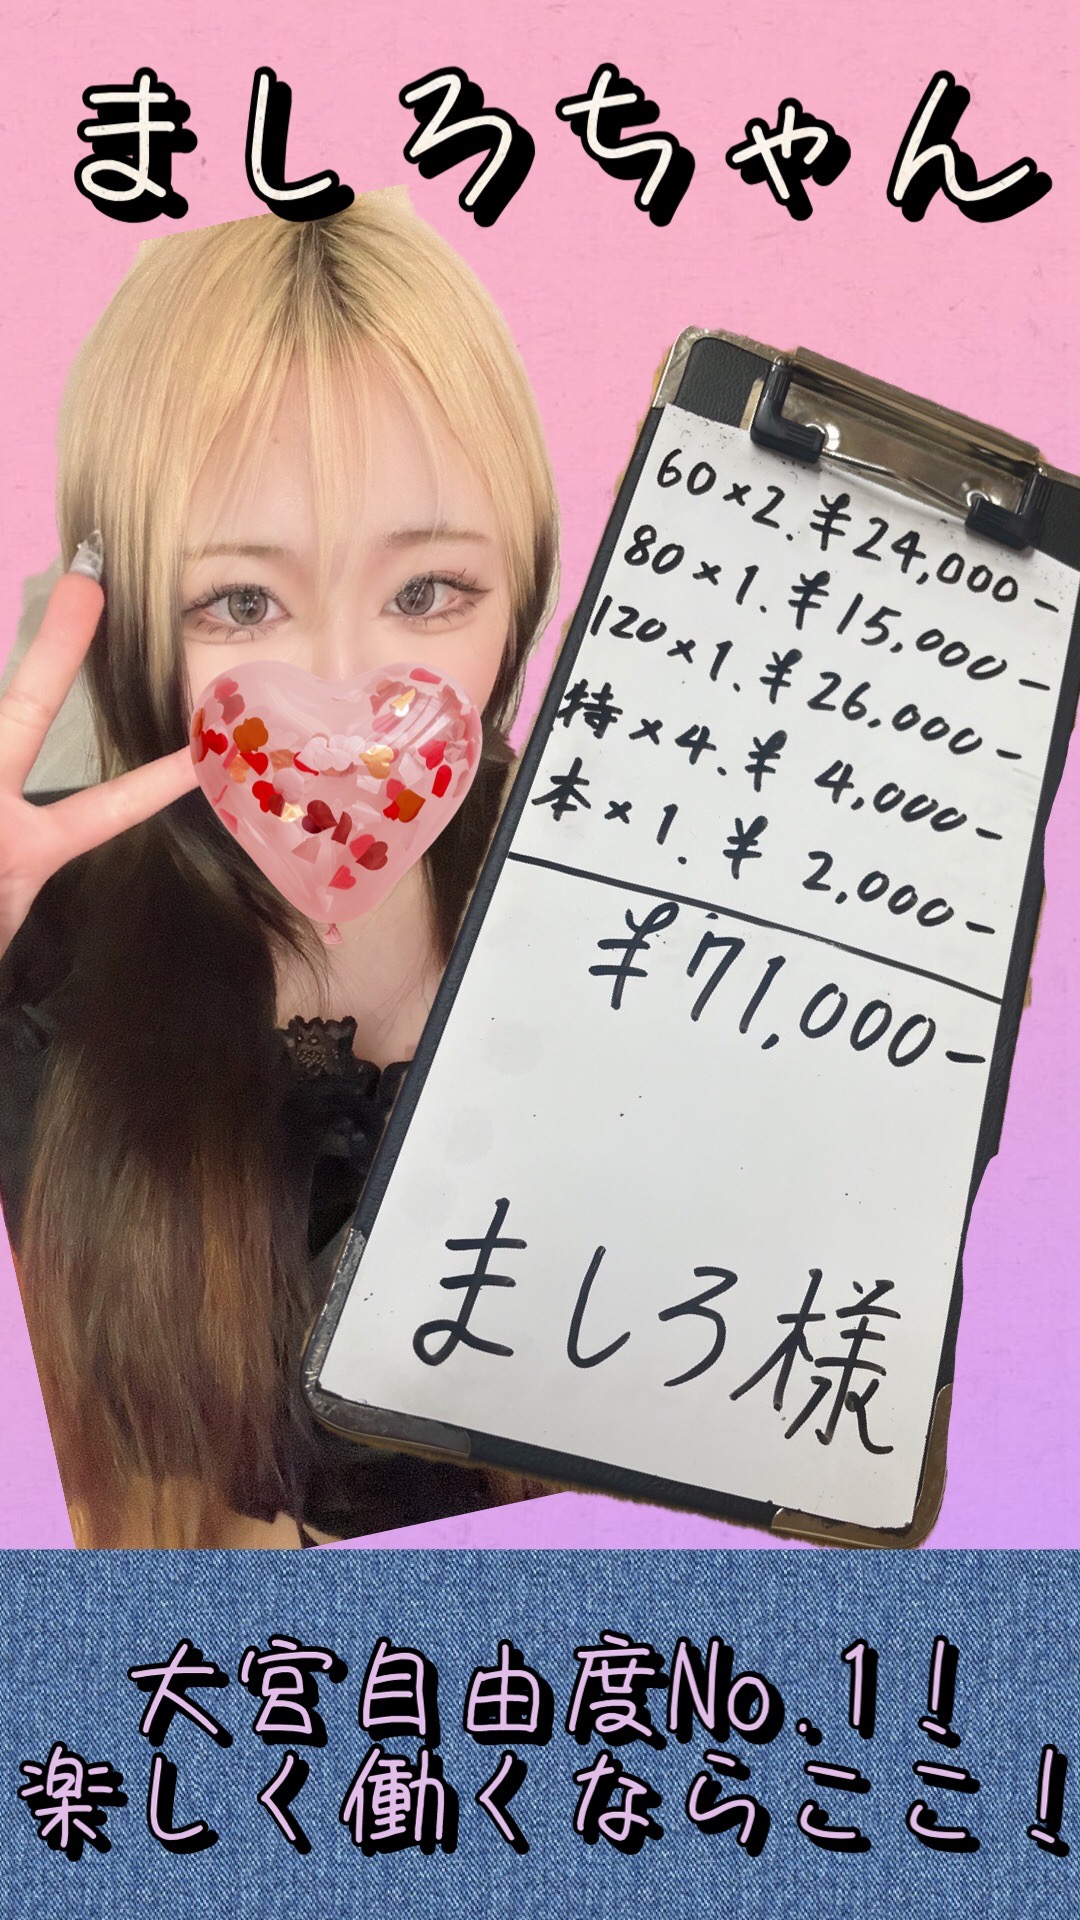 ましろちゃん
60×2.¥24,000-
80×1.¥15,000-
120×1.¥26,000-
特×4.¥4,000-
本×1.¥2,000-
¥71,000-
ましろ様
大宮自由度No.1!
楽しく働くならここ!